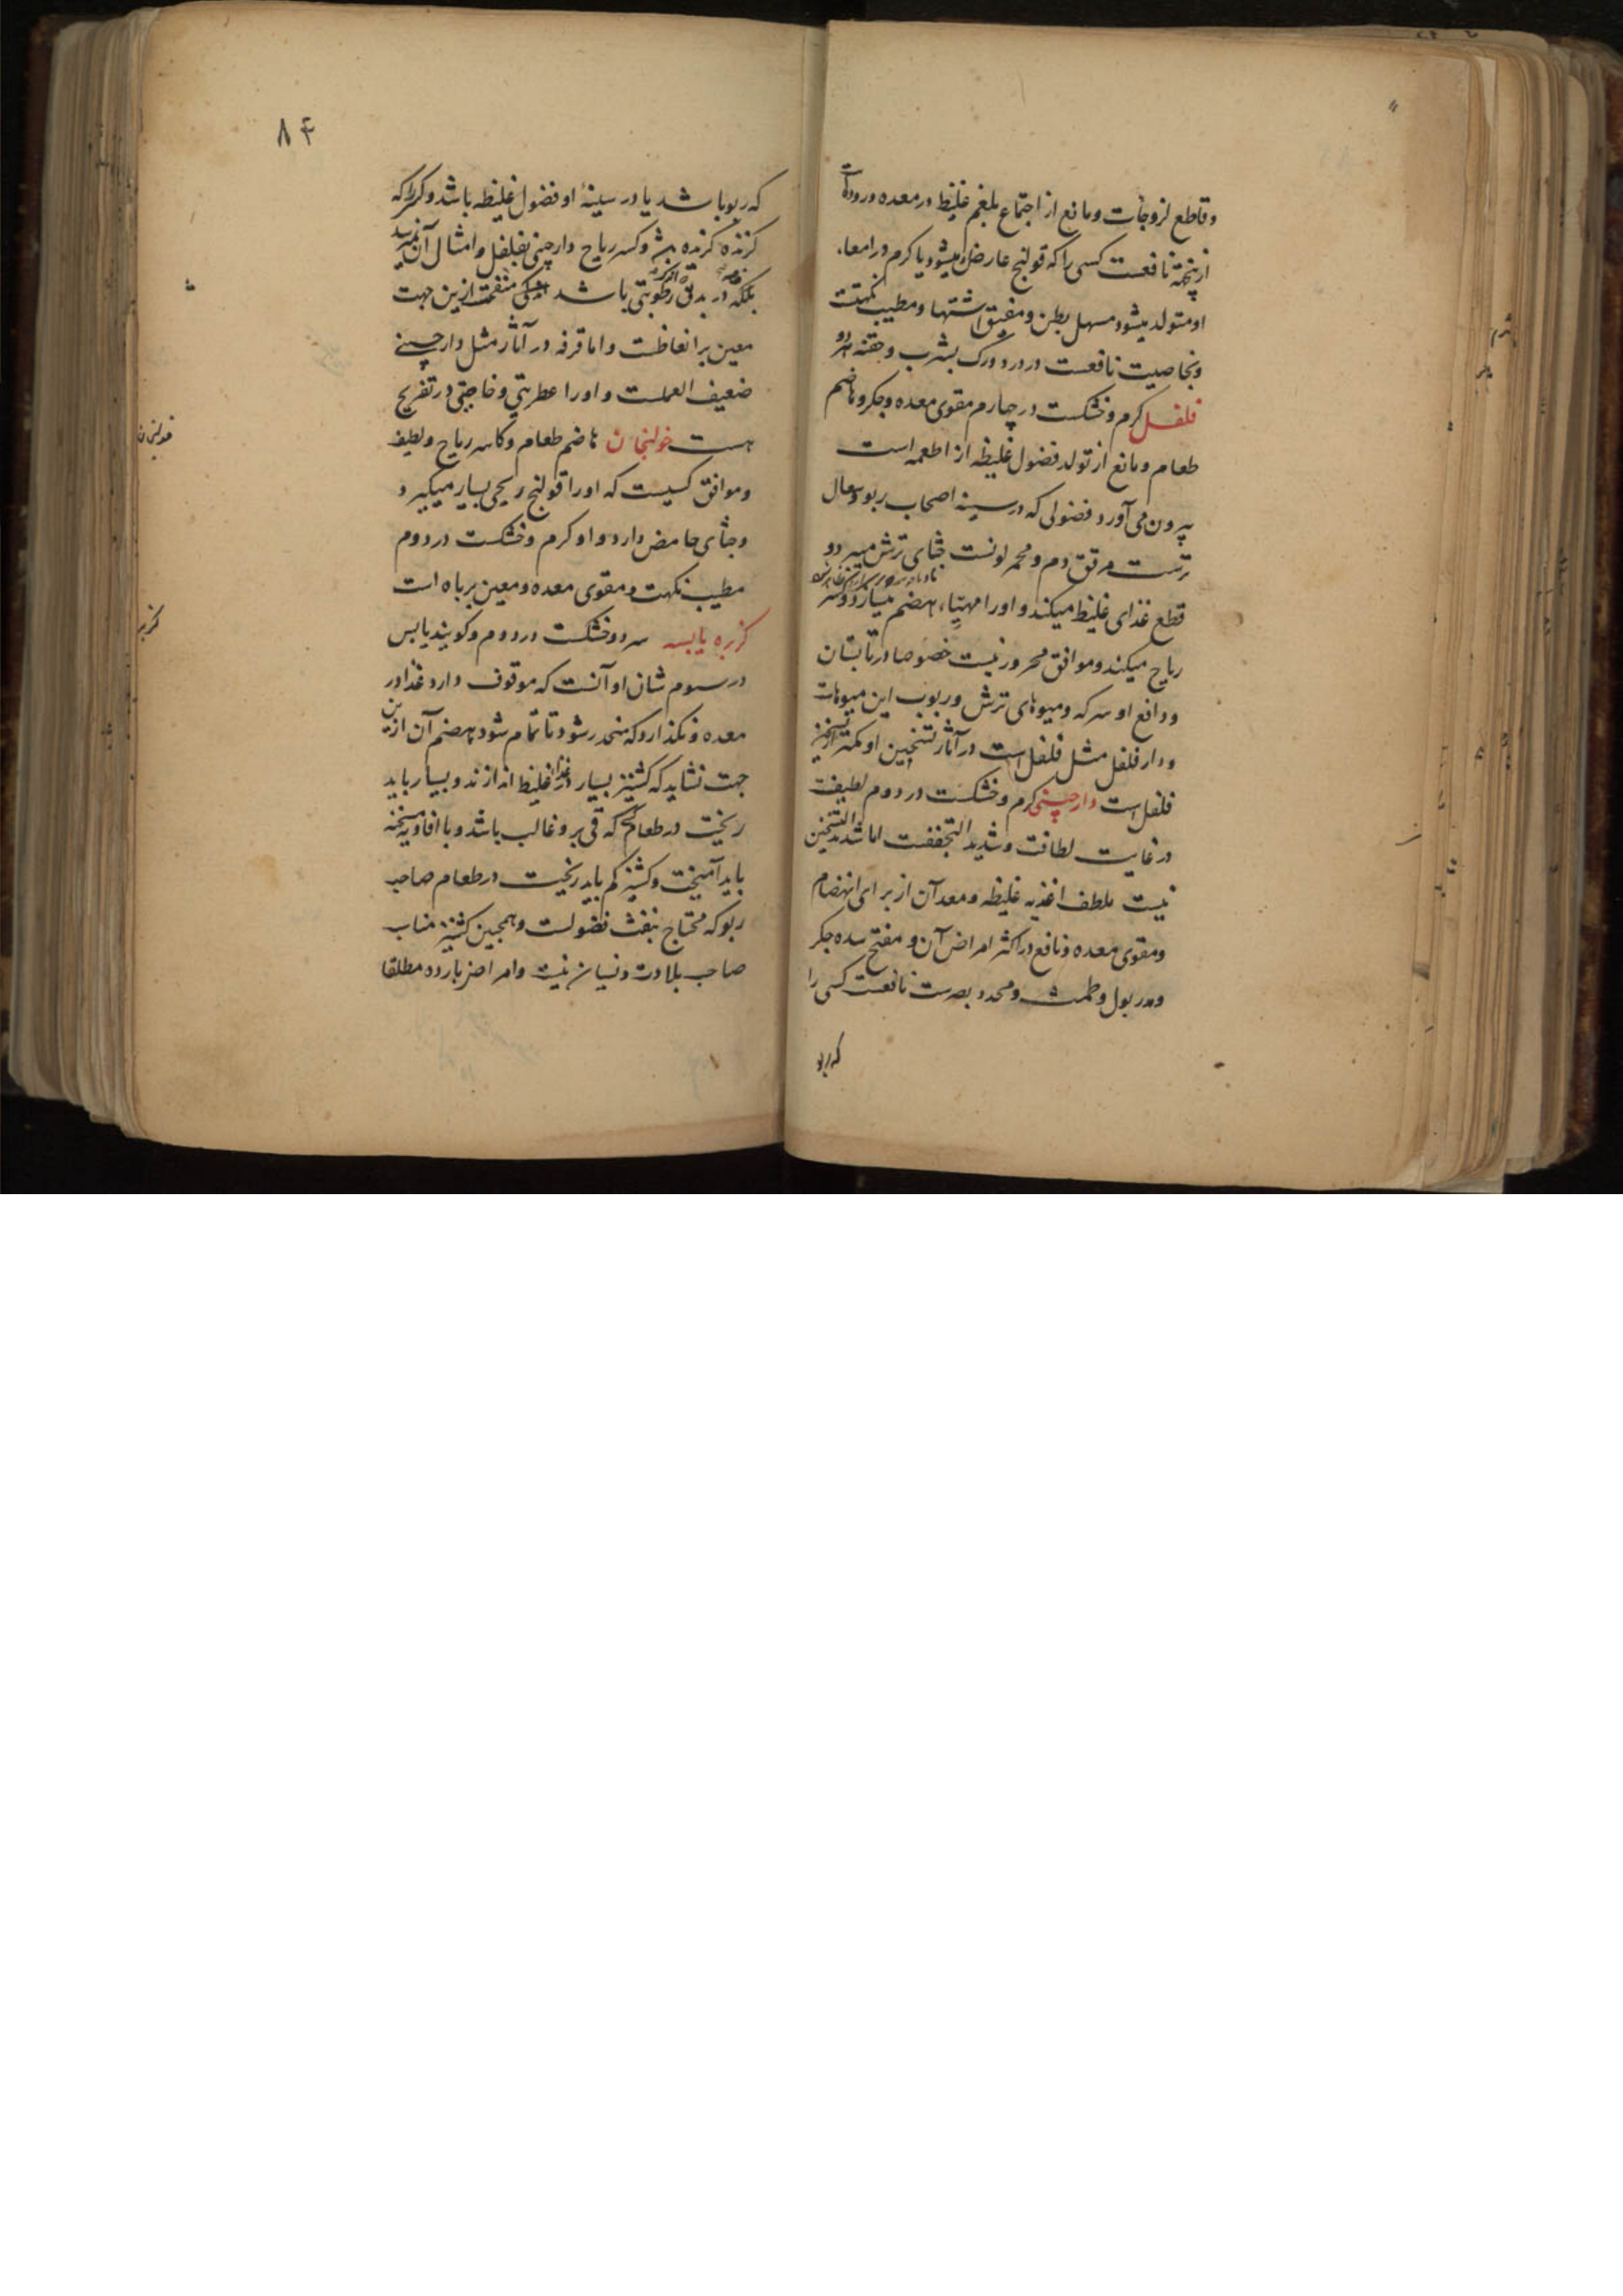 وقاطع لزوجات و مانع از اجتماع بلغم غلیظ در معده و رودهات
از پخته نافعست کسی را که قولنج عارض میشود یا کرم در امعاء
او متولد میشود مسهل بطن و مفتق اشتها و مطیب نکهتت
و بخاصیت نافعست در درد ورک بشرب و حقنه هر دو
فلفل کرم و خشکست در چهارم مقوی معده و جکر و هاضم
طعام و مانع از تولد فضول غلیظه از اطعمه است
بیرون می آورد فضولی که در سینه اصحاب ربو و سعال
ترست مرقق دم و محمر لونست جشای ترش میبرد و
قطع غذای غلیظ میکند و اورا مهیاء هضم میسازد و کسر
ریاح میکند و موافق محرور نیست خصوصا در تابستان
و دافع او سرکه و میوهای ترش و ربوب این میوهات
و دار فلفل مثل فلفل است در آثار تسخین او کمتر از تسخین
فلفل است دارچینی کرم و خشکست در دوم لطیفت
در غایت لطافت و شدید التجففت اما شدید التسخین
نیست ملطف اغذیه غلیظه و معد آن از برای انهضام
و مقوی معده و نافع در اکثر امراض آن و مفتح سده جکر
و مدر بول و طمث و محدد بصرست نافعست کسی را
که ربو
۸۴
که ربو باشد یا در سینهٔ او فضول غلیظه باشد و کسی را که
کزنده کزنده باشد و کسر ریاح دارچینی بفلفل و امثال آن نمیرسد
بلکه در بدقه رطوبتی باشد منفعت ازین جهت
معین بر انعاظست و اما قرفه در آثار مثل دارچینی
ضعیف العملست و اورا عطریتی و خاصیتی در تفریح
هست خولنجان هاضم طعام و کاسر ریاح و لطیف
و موافق کسیست که اورا قولنج ریحی بسیار میکیرد و
و جشای حامض دارد و او کرم و خشکست در دوم
مطیب نکهت و مقوی معده و معین بر باه است
کزبره یابسه سرد و خشکست در دوم و کویند یابس
در سوم شان او آنست که موقوف دارد غذا در
معده و نکذارد که منحدر شود تا تمام شود هضم آن ازین
جهت نشاید که کشنیز بسیار در غذا غلیظ اندازند و بسیار باید
ریخت در طعام کسی که قی بر و غالب باشد و با افاویه مسخنه
باید آمیخت و کشنیز کم باید ریخت در طعام صاحب
ربو که محتاج بنفث فضولست و همچنین کشنیز مناسب
صاحب بلادت و نسیان نیست و امراض بارده مطلقا
خولنجان
کزبره